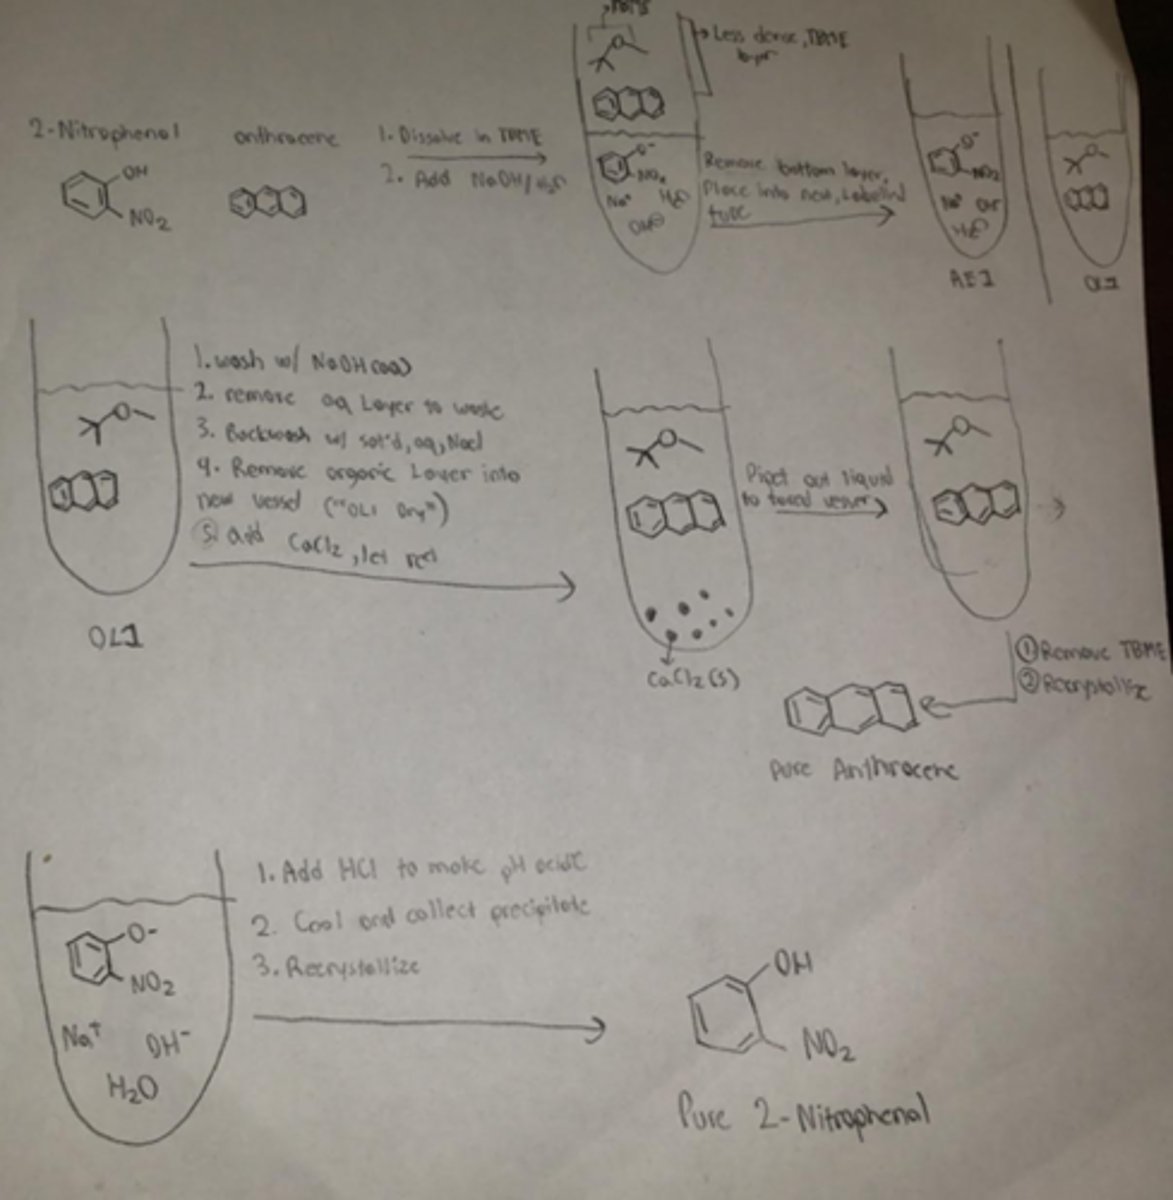 Less dense, TBME
layer
2-Nitrophenol
anthracene
1. Dissolve in TBME
2. Add NaOH/H₂O
OH
NO₂
O⁻
NO₂
Na⁺ H₂O
OH⊖
Remove bottom layer,
Place into new, Labeled
tube
O⁻
NO₂
Na⁺ OH⁻
H₂O
AE1
OL1
O
O
1. wash w/ NaOH(aq)
2. remove aq Layer to waste
3. Backwash w/ sat'd, aq, NaCl
4. Remove organic Layer into
new vessel ("OL1 Dry")
5. add CaCl₂, let
OL1
O
CaCl₂(s)
Pipet out liquid
to vessel
O
① Remove TBME
② Recrystallize
Pure Anthracene
O-
NO₂
Na⁺ OH⁻
H₂O
1. Add HCl to make pH acidic
2. Cool and collect precipitate
3. Recrystallize
OH
NO₂
Pure 2-Nitrophenol